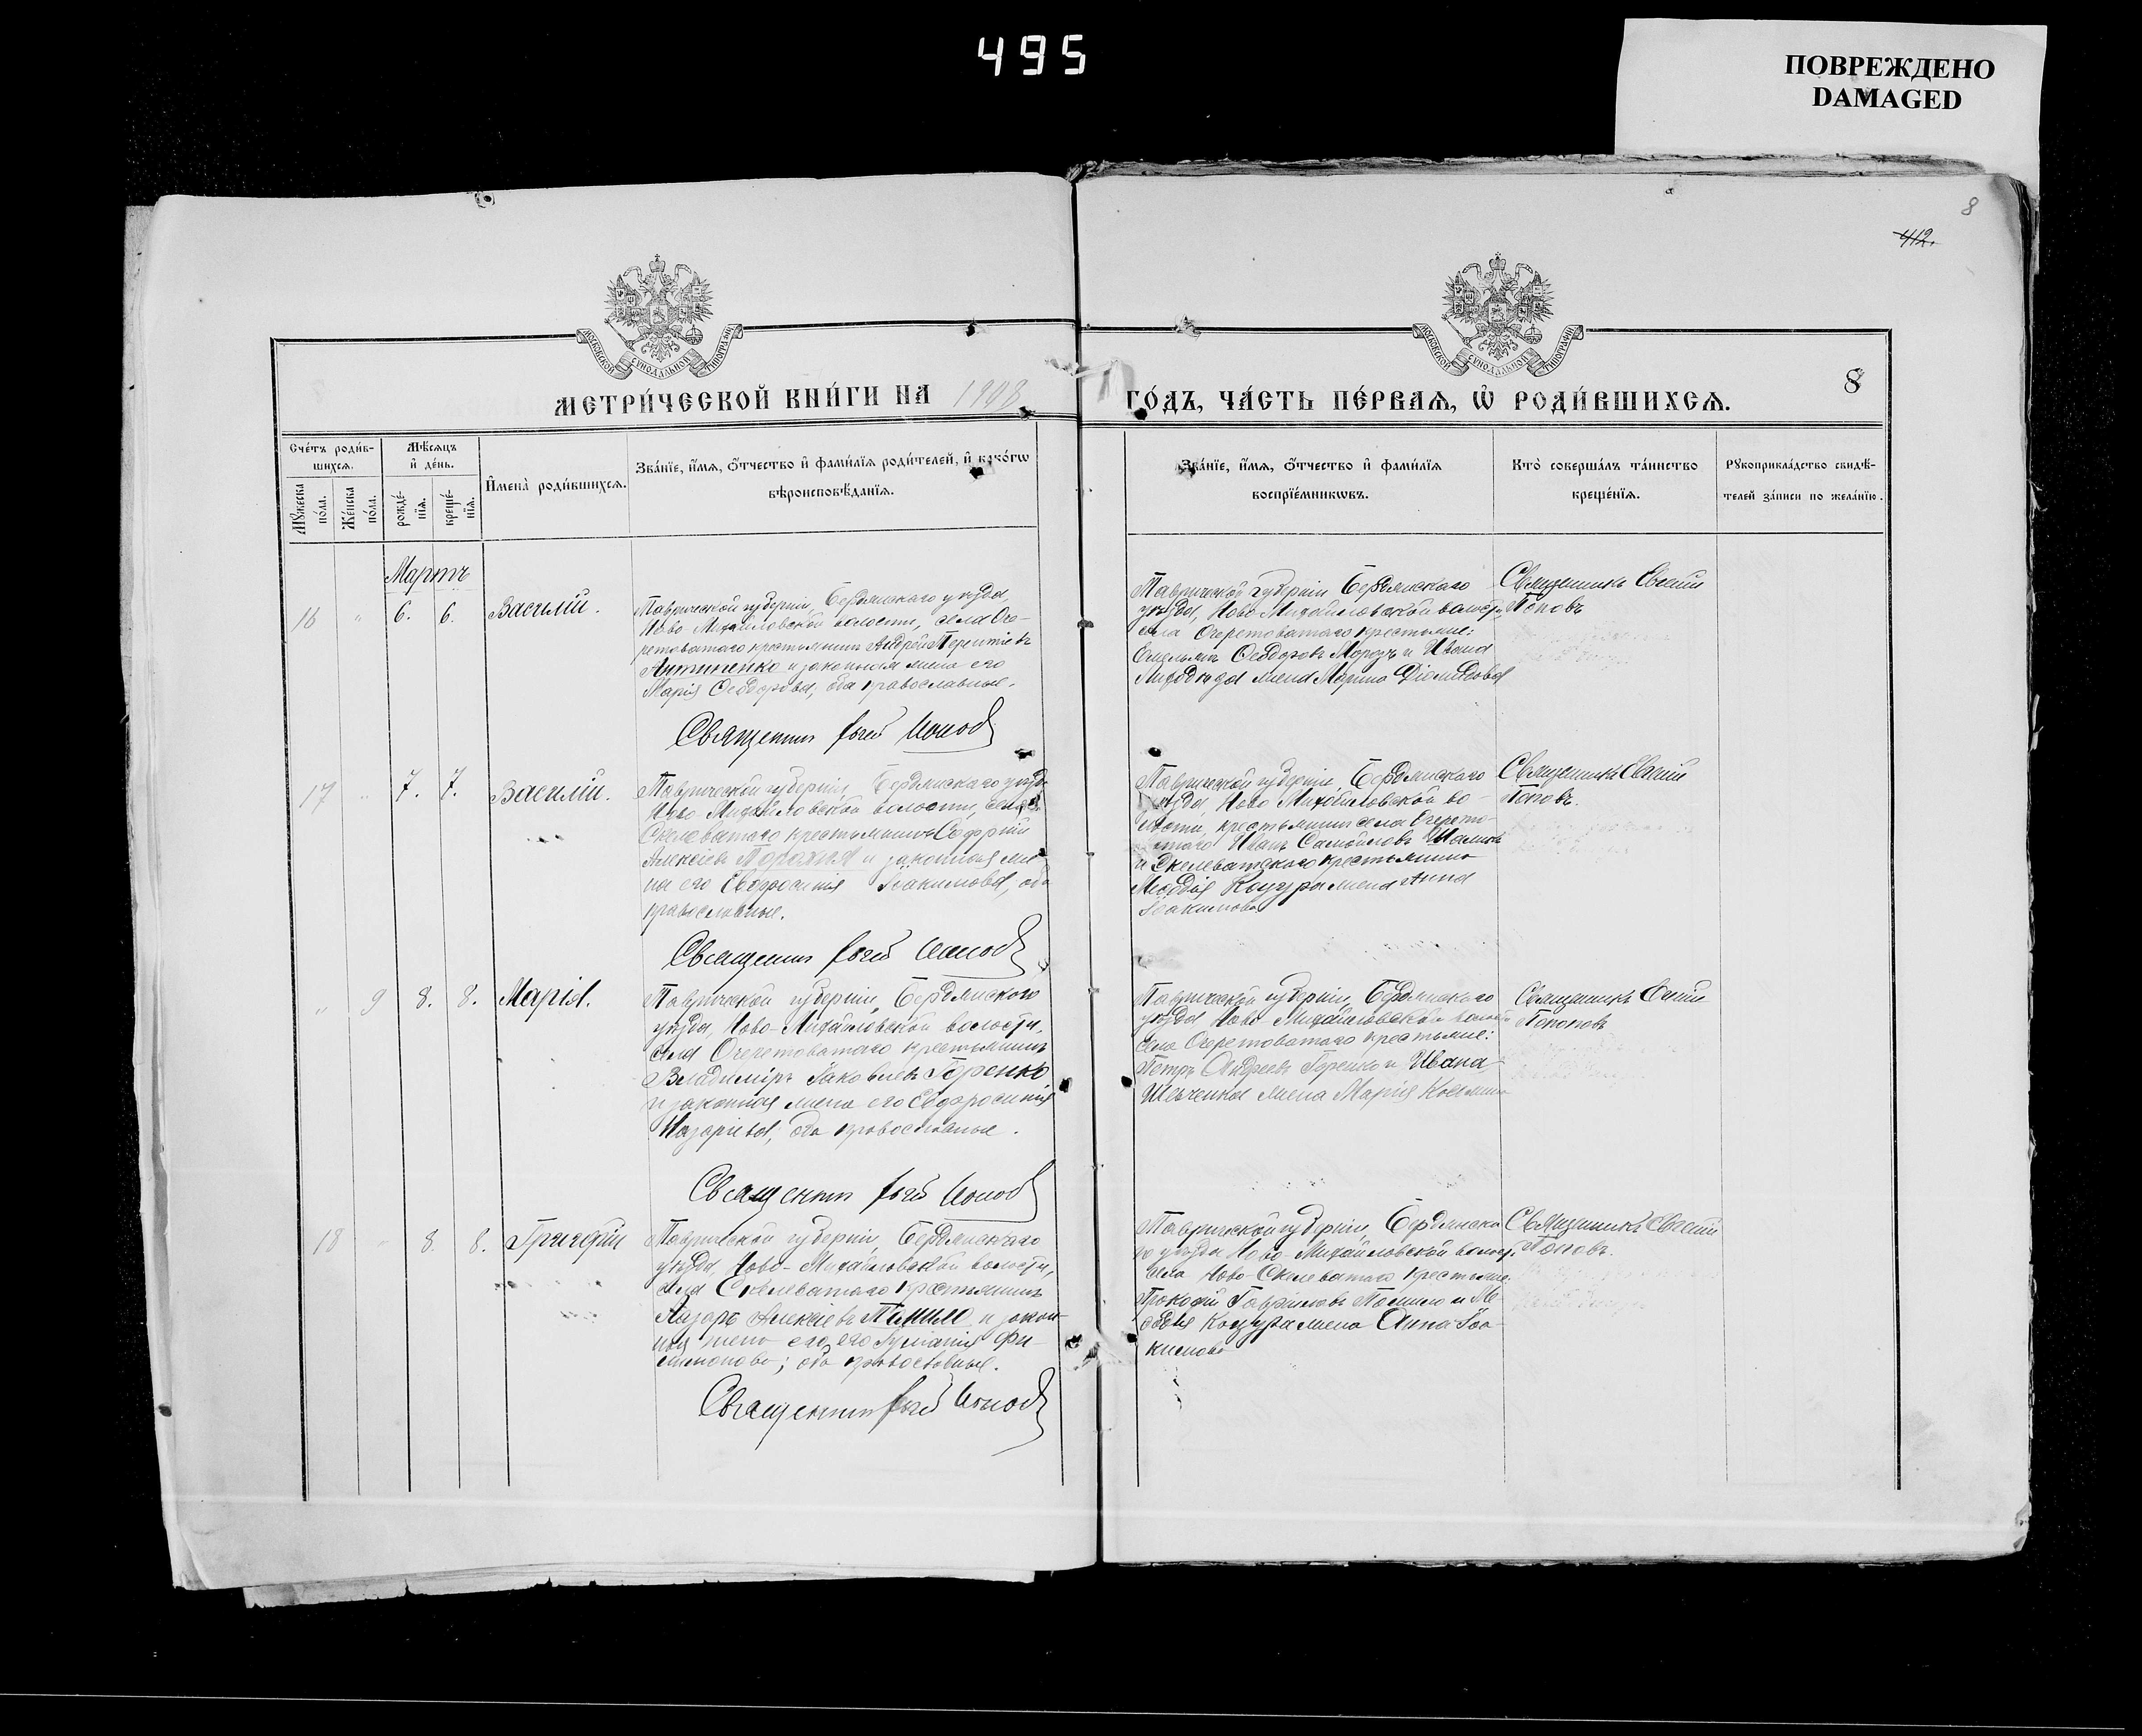 495
ПОВРЕЖДЕНО
DAMAGED
8
412.
МОСКОВСКОЙ СѴНОДАЛЬНОЙ ТИПОГРАФІИ
МОСКОВСКОЙ СѴНОДАЛЬНОЙ ТИПОГРАФІИ
МЕТРИ́ЧЕСКОЙ КНИ́ГИ НА 1908
ГО́ДЪ, ЧА́СТЬ ПЕ́РВАѦ, Ѡ҆ РОДИ́ВШИХСѦ.
8
Сче́тъ роди́в-
шихсѧ.
Мꙋжеска
по́ла.
Же́нска
по́ла.
Мѣ́сѧцъ
и҆ де́нь.
рожде́-
нїѧ.
креще́-
нїѧ.
И҆мена̀ роди́вшихсѧ.
Зва́нїе, и҆́мѧ, ѻ҆́тчество и҆ фами́лїѧ роди́телей, и҆ како́гѡ
вѣроисповѣ́данїѧ.
Зва́нїе, и҆́мѧ, ѻ҆́тчество и҆ фами́лїѧ
воспрїе́мникѡвъ.
Кто̀ соверша́лъ та́инство
креще́нїѧ.
Рꙋкоприкла́дство свидѣ́-
телей за́писи по жела́нїю.
Мартъ
16 " 6. 6. Василій.
Таврической губерніи, Бердянскаго уѣзда,
Ново-Михайловской волости, села Оче-
ретоватаго крестьянинъ Андрей Терентіевъ
Антипенко и законная жена его
Марія Ѳеодорова, оба православные.
Священникъ Попов
Таврической губерніи Бердянскаго
уѣзда, Ново-Михайловской волости,
села Очеретоватаго крестьяне:
Емельянъ Ѳеодоровъ Морозъ и Ивана
жена Марина Діомидова
Священникъ Евгеній
Поповъ
17 " 7. 7. Василій.
Таврической губерніи, Бердянскаго уѣзда
Ново-Михайловской волости, села
Скелеватаго крестьянинъ Софроній
Алексіевъ Порохня и законная же-
на его Евфросинія Іоакимова, оба
православные.
Священникъ Попов
Таврической губерніи, Бердянскаго
уѣзда, Ново-Михайловской во-
лости, крестьянинъ села Очерето-
ватаго Иванъ Самойловъ
и Скелеватскаго крестьянина
Меѳодія Коцура жена Анна
Іоакимова
Священникъ Евгеній
Поповъ.
" 9 8. 8. Марія.
Таврической губерніи, Бердянскаго
уѣзда, Ново-Михайловской волости,
села Очеретоватаго крестьянинъ
Владиміръ Іаковлевъ Горенко
и законная жена его Евфросинія
Назарьева, оба православные.
Священникъ Попов
Таврической губерніи, Бердянскаго
уѣзда Ново-Михайловской волости
села Очеретоватаго крестьяне:
Петръ Андреевъ Горенко и Ивана
Шевченка жена Марія
Священникъ Евгеній
Поповъ
18 " 8. 8. Григорій
Таврической губерніи, Бердянскаго
уѣзда, Ново-Михайловской волости,
села Скелеватаго крестьянинъ
Лазарь Алексіевъ и закон-
ная жена его Іуліанія Фи-
лимонова; оба православные.
Священникъ Попов
Таврической губерніи, Бердянска-
го уѣзда Ново-Михайловской волости
села Ново-Скелеватаго крестьяне:
Прокофій Гавриловъ и Ме-
ѳодія Коцура жена Анна Іоа-
кимова
Священникъ Евгеній
Поповъ.